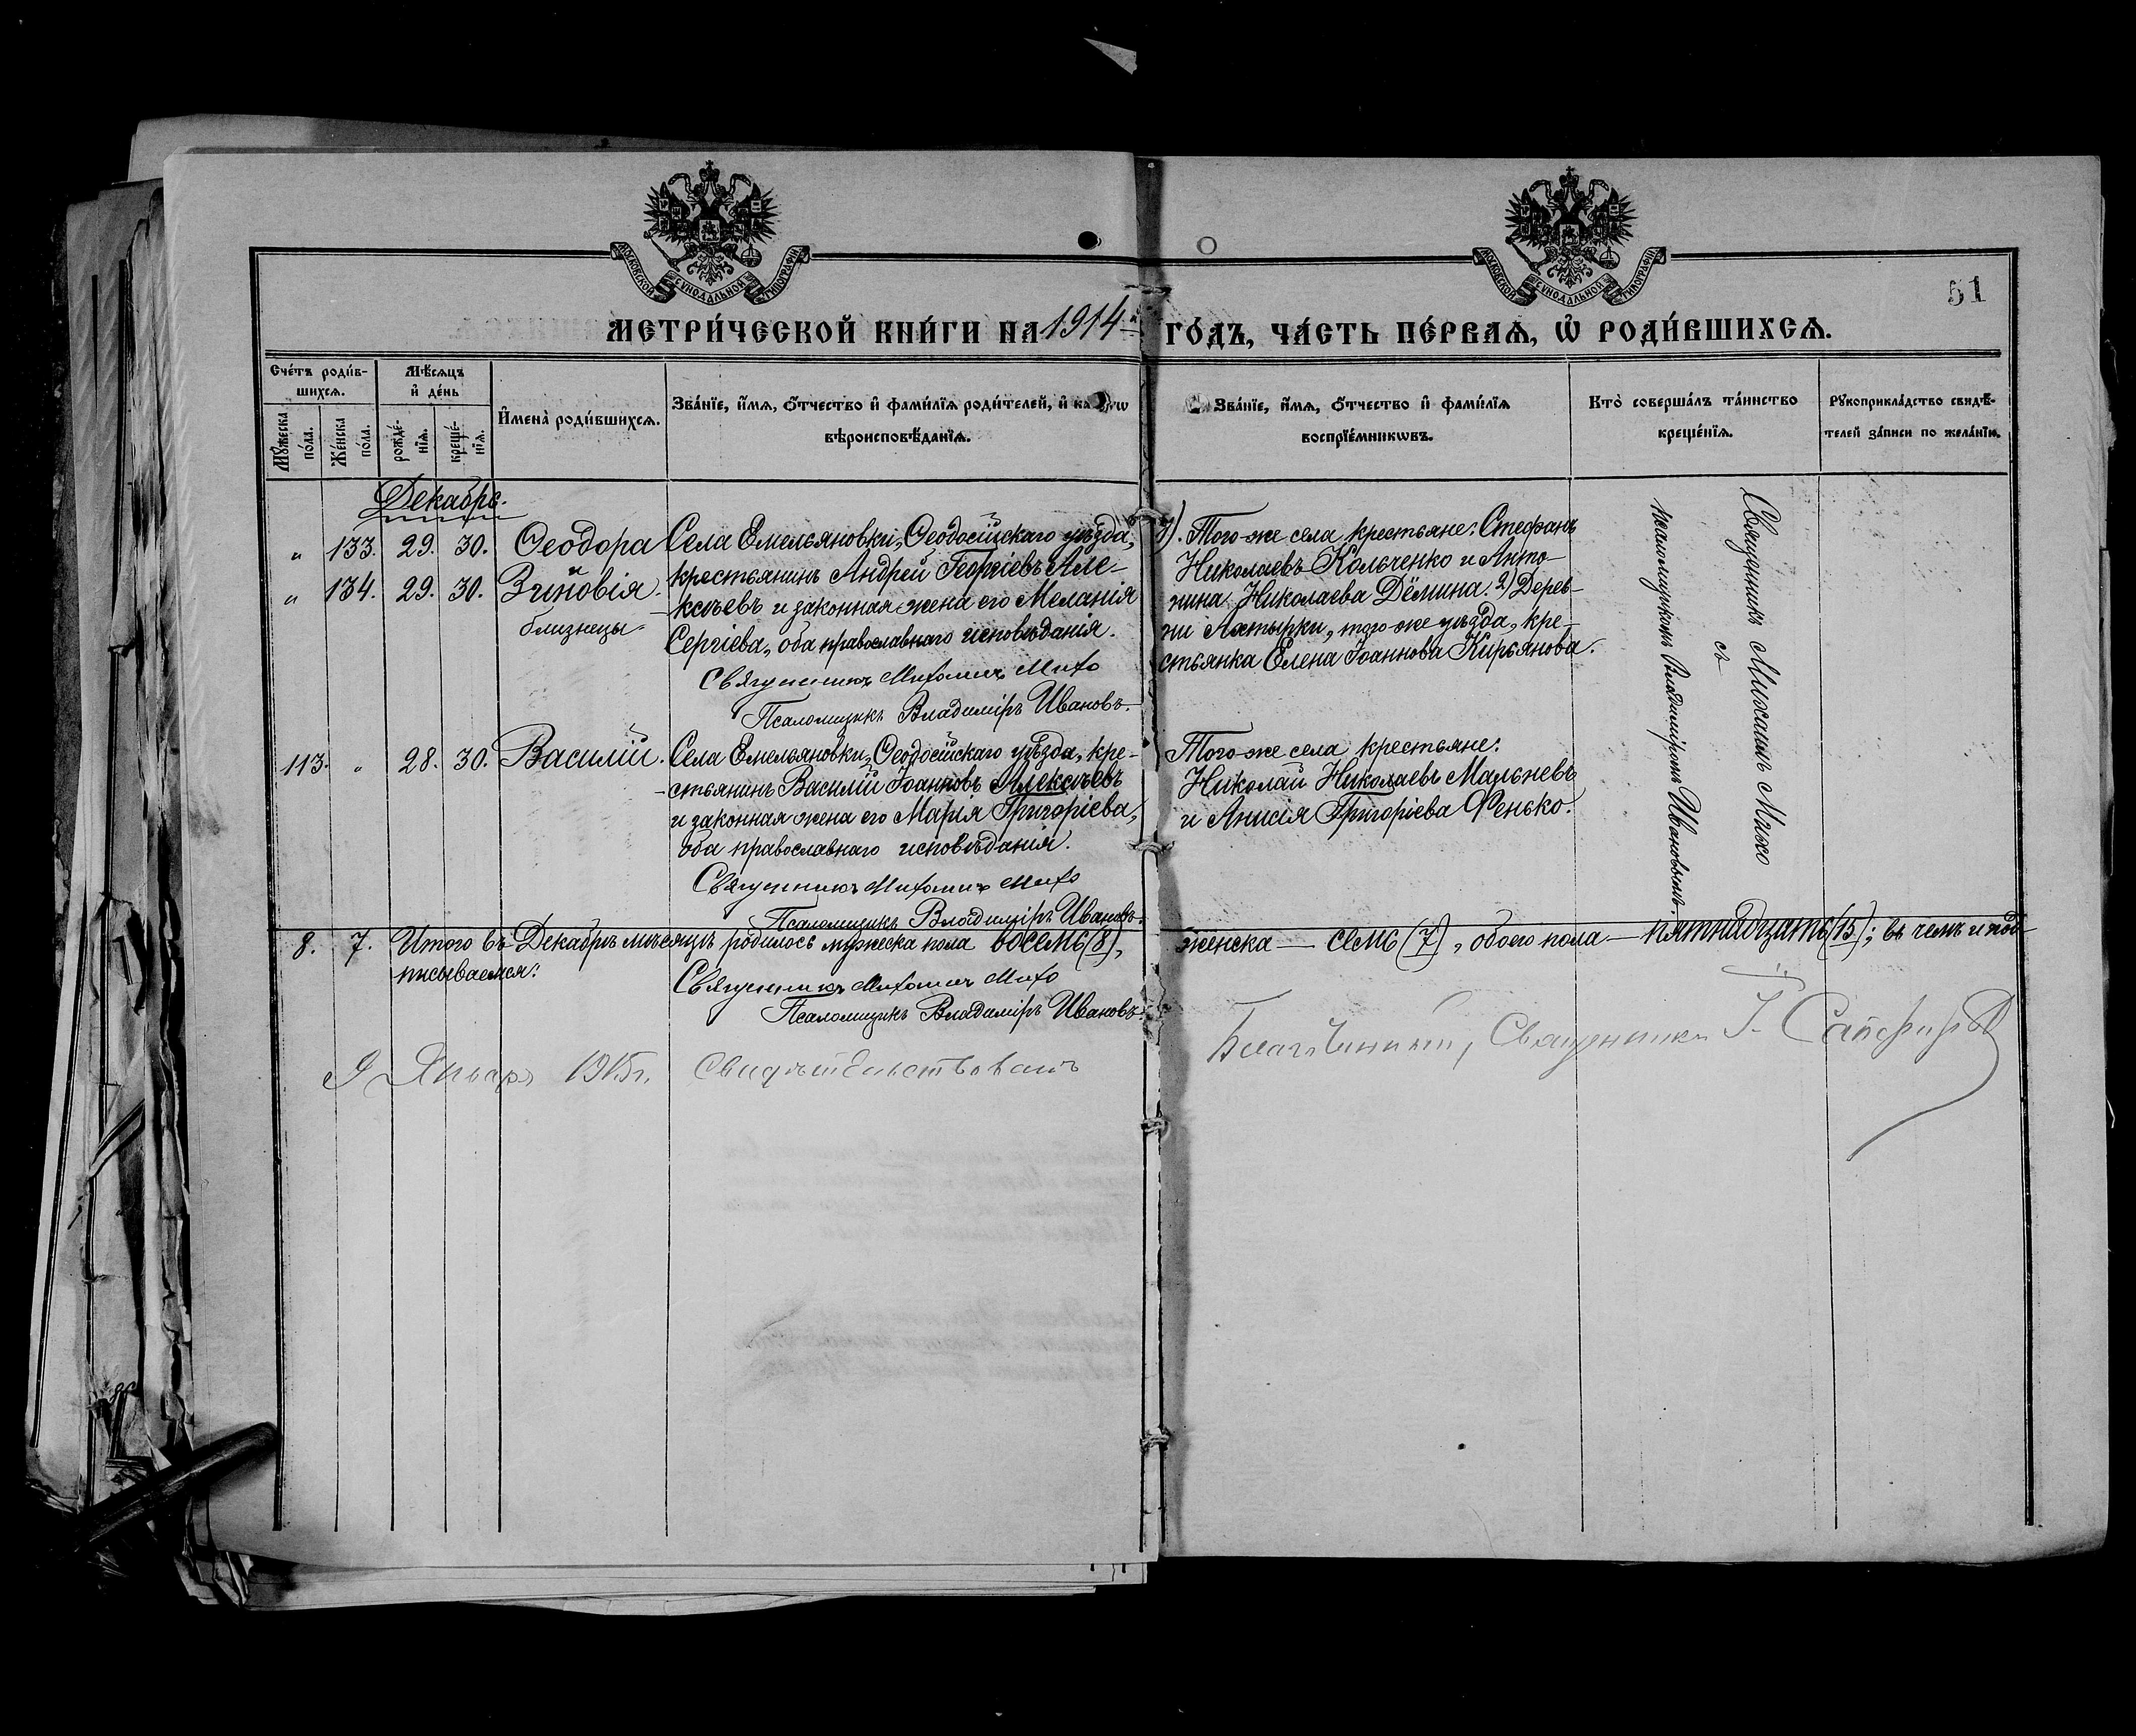 МОСКОВСКОЙ СѴНОДАЛЬНОЙ ТИПОГРАФІИ
МОСКОВСКОЙ СѴНОДАЛЬНОЙ ТИПОГРАФІИ
51
МЕТРИ́ЧЕСКОЙ КНИ́ГИ НА 1914 ГО́ДЪ, ЧА́СТЬ ПЕ́РВАѦ, Ѡ҆ РОДИ́ВШИХСѦ.
Сче́тъ роди́в-
шихсѧ.
Мꙋ́жеска по́ла.
Же́нска по́ла.
Мѣ́сѧцъ
и҆ де́нь
рожде́-
нїѧ.
креще́-
нїѧ.
И҆мена̀ роди́вшихсѧ.
Зва́нїе, и҆́мѧ, ѻ҆́тчество и҆ фами́лїѧ роди́телей, и҆
вѣроисповѣ́данїѧ.
Зва́нїе, и҆́мѧ, ѻ҆́тчество и҆ фами́лїѧ
воспрїе́мникѡвъ.
Кто̀ соверша́лъ та́инство
креще́нїѧ.
Рꙋкоприкла́дство свидѣ́-
телей за́писи по жела́нїю.
Декабрь.
„ 133. 29. 30. Ѳеодора
и
„ 134. 29. 30. Зиновія.
близнецы
Села Емельяновки, Ѳеодосійскаго уѣзда,
крестьянинъ Андрей Георгіевъ Але-
ксѣевъ и законная жена его Меланія
Сергіева, оба православнаго исповѣданія.
Священникъ Михаилъ Михо
Псаломщикъ Владиміръ Ивановъ.
1). Того-же села крестьяне: Стефанъ
Николаевъ Кольченко и Анто-
нина Николаева Дёмина. 2) Дерев-
ни Аятырки, того-же уѣзда, кре-
стьянка Елена Іоаннова Кирьянова.
Священникъ Михаилъ Михо
съ
псаломщикомъ Владиміромъ Ивановымъ.
113. „ 28. 30. Василій.
Села Емельяновки, Ѳеодосійскаго уѣзда, кре-
стьянинъ Василій Іоанновъ Алексѣевъ
и законная жена его Марія Григоріева,
оба православнаго исповѣданія.
Священникъ Михаилъ Михо
Псаломщикъ Владиміръ Ивановъ.
Того-же села крестьяне:
Николай Николаевъ Мальневъ
и Анисія Григоріева Фенько.
8. 7. Итого въ Декабрѣ мѣсяцѣ родилось мужеска пола восемь (8), женска — семь (7), обоего пола — пятнадцать (15); въ чемъ и под-
писываемся:
Священникъ Михаилъ Михо
Псаломщикъ Владиміръ Ивановъ.
9 Января 1915 г. Свидѣтельствовалъ
Благочинный, Священникъ І. Сапфировъ